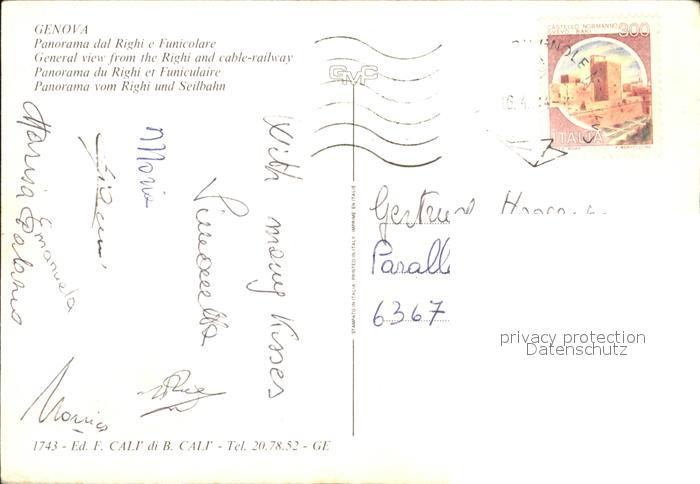 GENOVA
Panorama dal Righi e Funicolare
General view from the Righi and cable-railway
Panorama du Righi et Funiculaire
Panorama vom Righi und Seilbahn
GMC
CASTELLO NORMANNO
SVEVO. BARI
300
ITALIA
With many Kisses
Maria
Emanuela
Marisa
Monica
STAMPATO IN ITALIA PRINTED IN ITALY IMPRIME EN ITALIE
Gertrud
Parall
6367
privacy protection
Datenschutz
1743 - Ed. F. CALI' di B. CALI' - Tel. 20.78.52 - GE